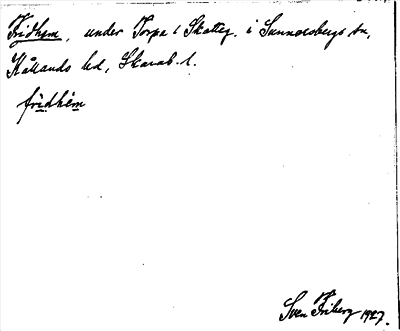 Fridhem, under Torpa 1 Skatteg. i Sunnersbergs sn,
Kållands hd, Skarab. l.
fridhém
Sven Friberg 1927.